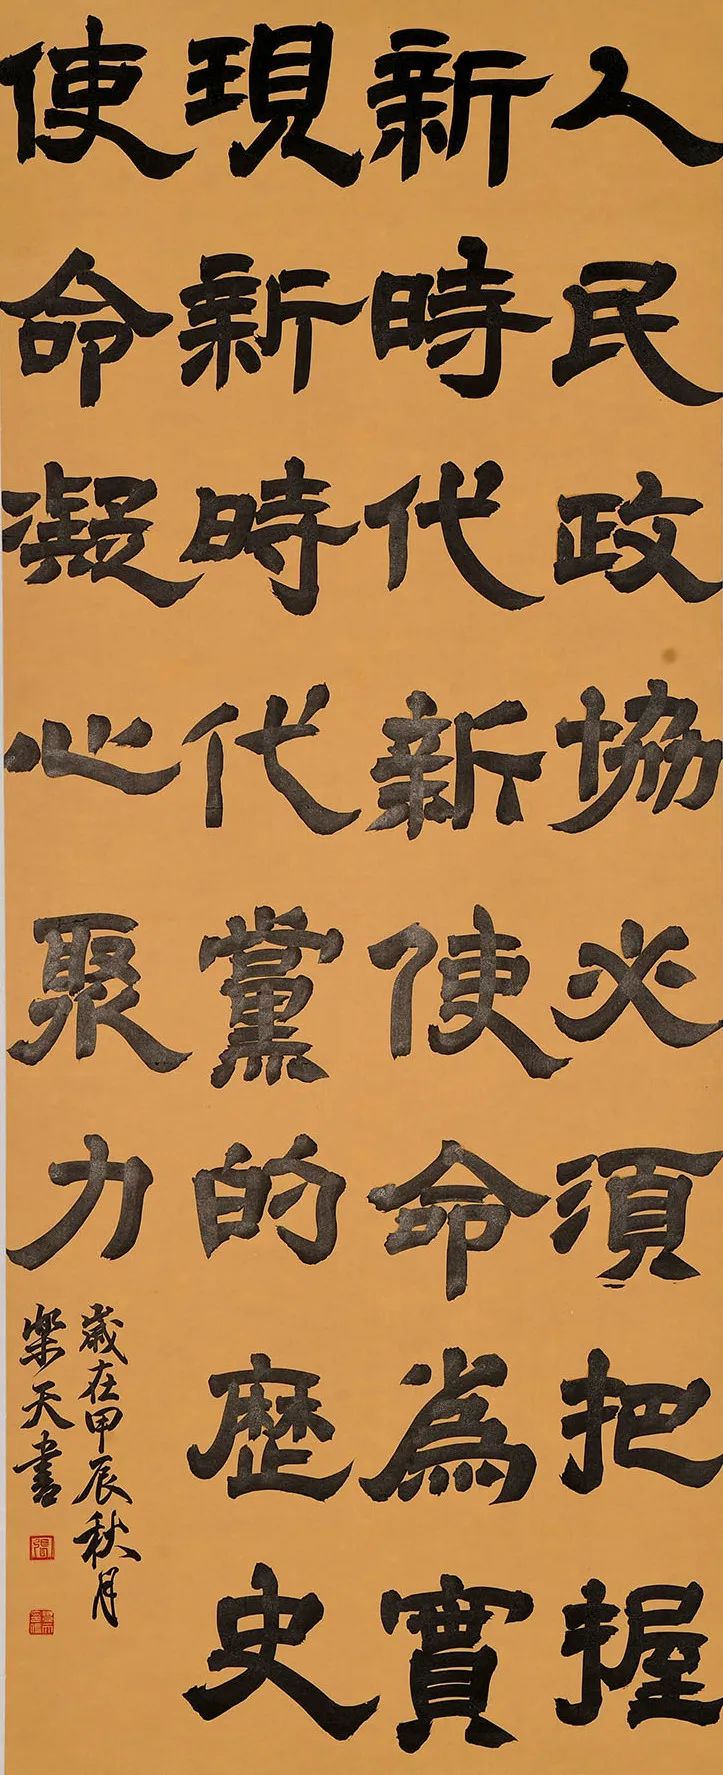 人民政協必須把握
新時代新使命為實
現新時代黨的歷史
使命凝心聚力
歲在甲辰秋月
樂天書